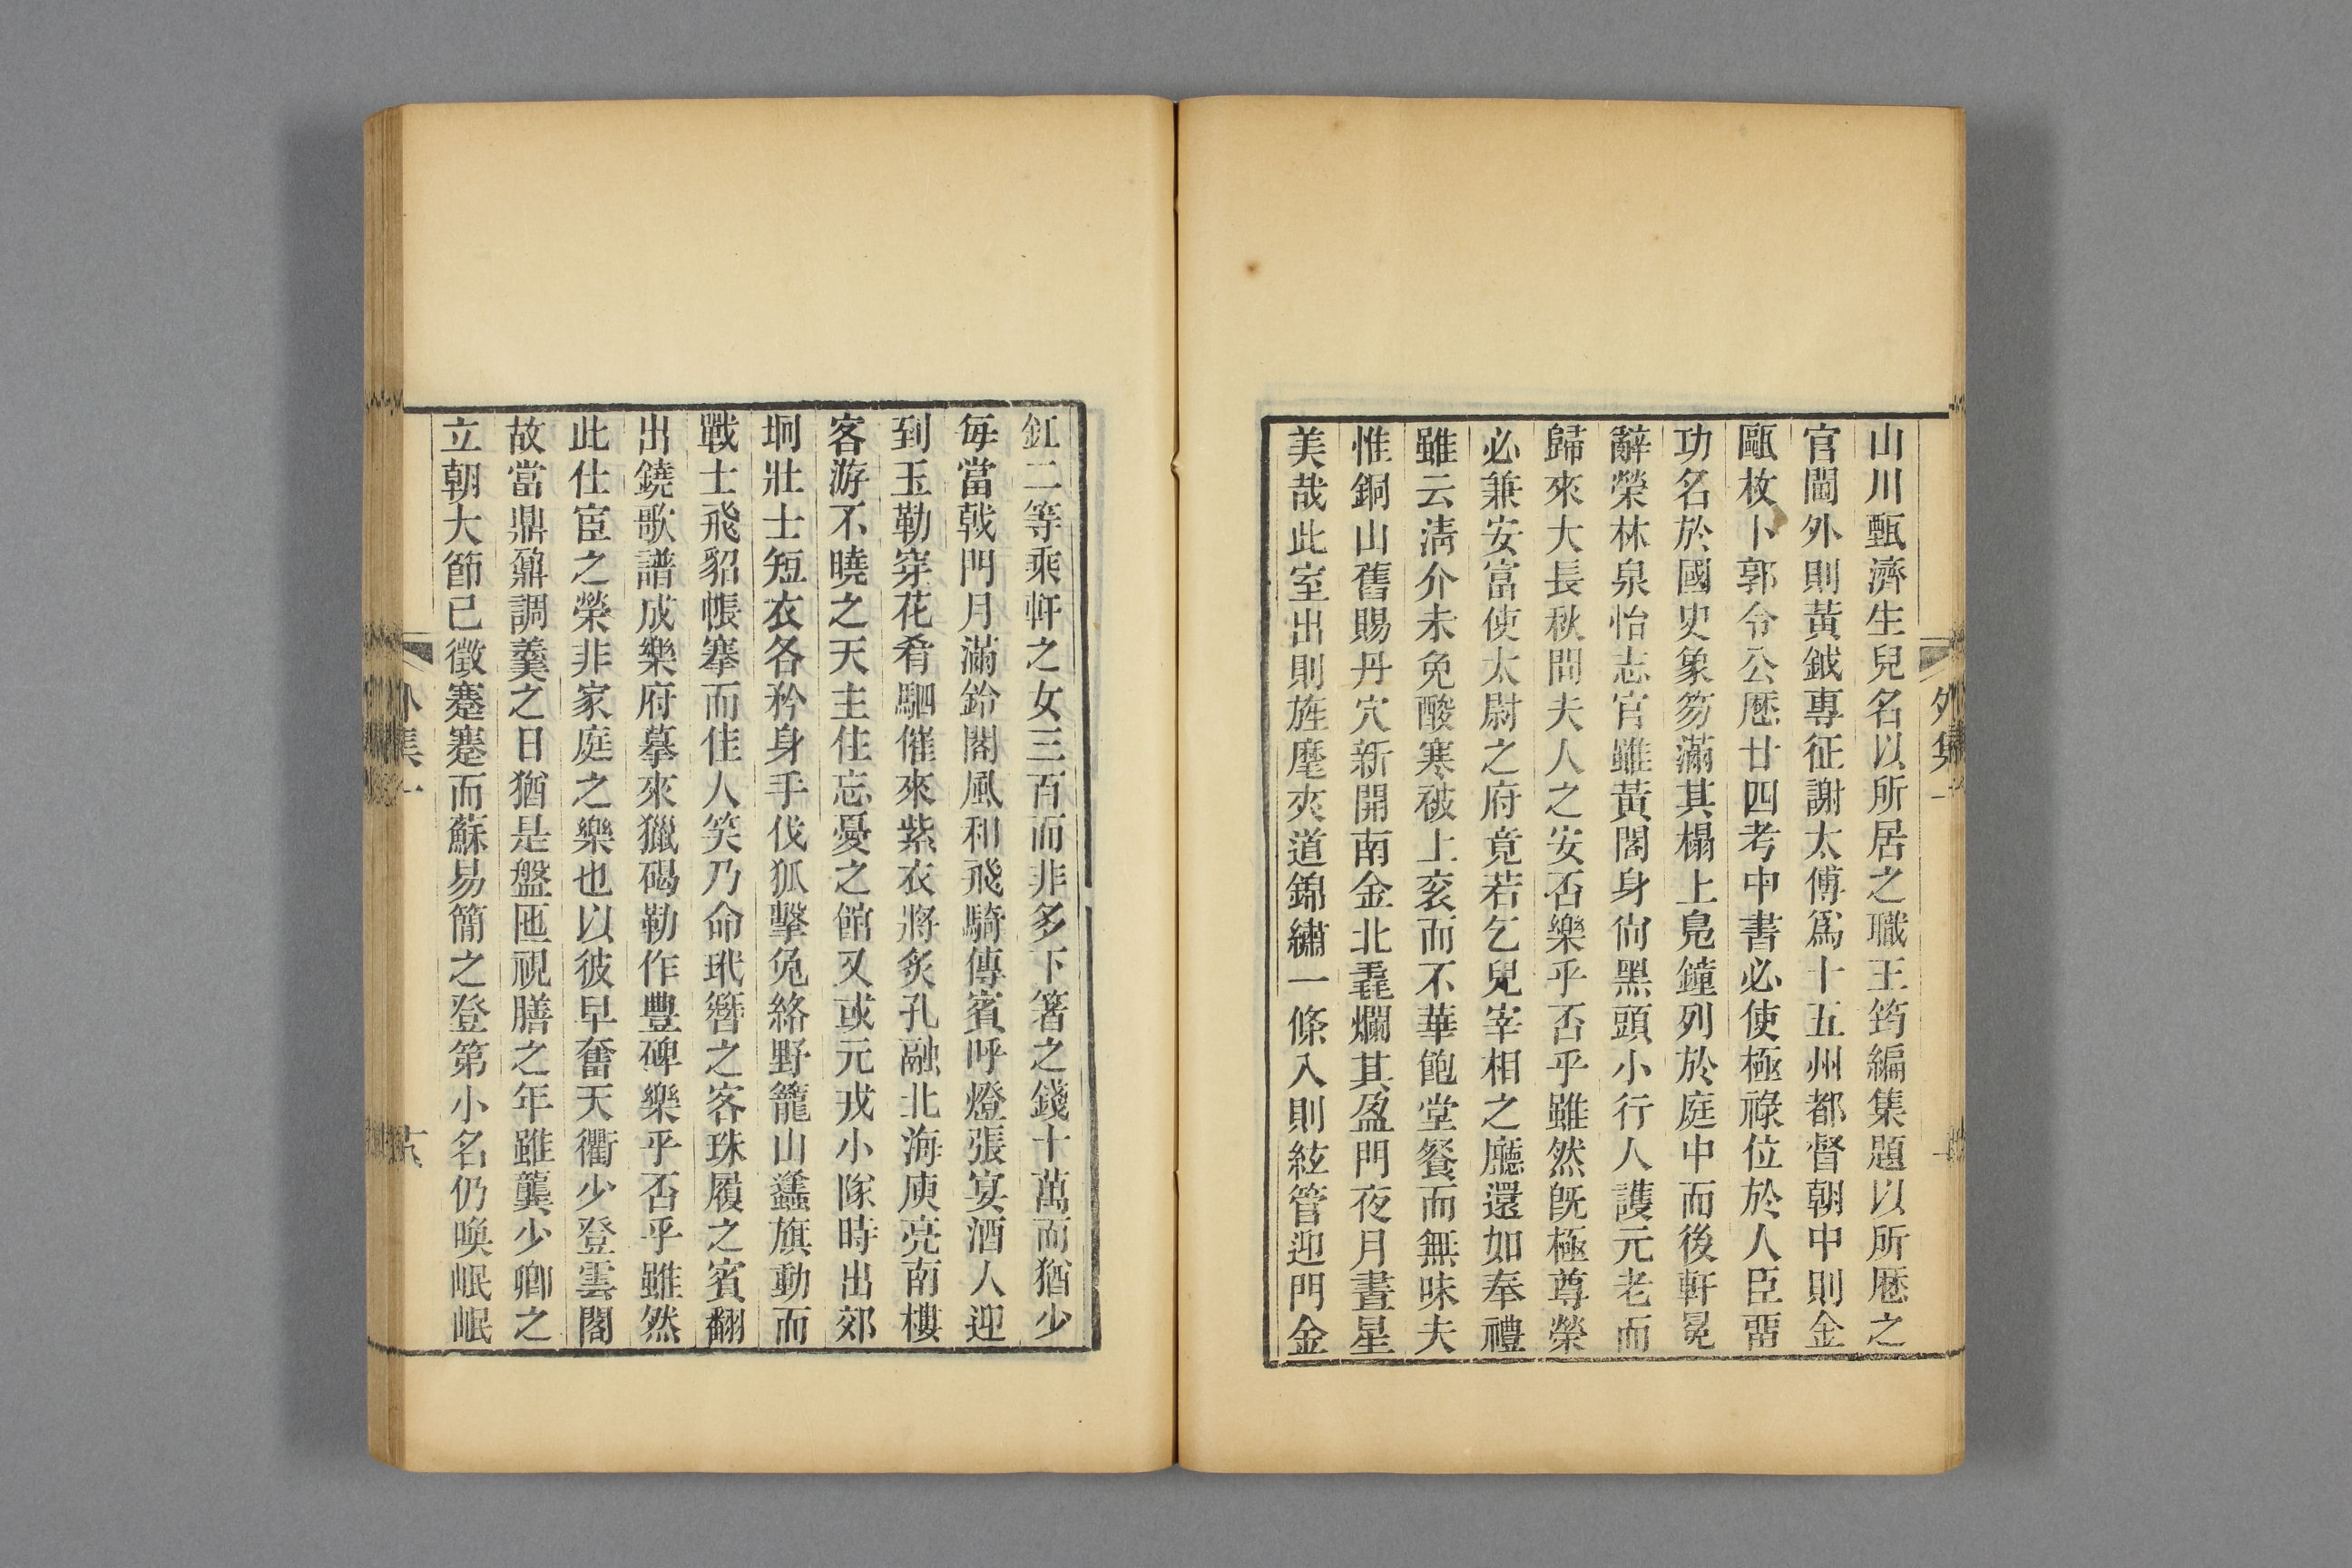 外集一
山川甄濟生兒名以所居之職王筠編集題以所歷之
官閫外則黃鉞專征謝太傅爲十五州都督朝中則金
甌枚卜郭令公歷廿四考中書必使極祿位於人臣畱
功名於國史象笏滿其榻上鳧鐘列於庭中而後軒冕
辭榮林泉怡志官雖黃閣身尙黑頭小行人護元老而
歸來大長秋問夫人之安否樂乎否乎雖然旣極尊榮
必兼安富使太尉之府竟若乞兒宰相之廳還如奉禮
雖云淸介未免酸寒破上衮而不華飽堂餐而無味夫
惟銅山舊賜丹穴新開南金北毳爛其盈門夜月晝星
美哉此室出則旌麾夾道錦繡一條入則絃管迎門金
釭二等乘軒之女三百而非多下箸之錢十萬而猶少
每當戟門月滿鈴閣風和飛騎傳賓呼燈張宴酒人迎
到玉勒穿花肴駟催來紫衣將炙孔融北海庾亮南樓
客游不曉之天主住忘憂之館又或元戎小隊時出郊
坰壯士短衣各矜身手伐狐擊兔絡野籠山蠭旗動而
戰士飛貂帳搴而佳人笑乃命玳簪之客珠履之賓翻
出鐃歌譜成樂府摹來獵碣勒作豐碑樂乎否乎雖然
此仕宦之榮非家庭之樂也以彼早奮天衢少登雲閣
故當鼎鼐調羹之日猶是盤匜視膳之年雖龔少卿之
立朝大節已徵蹇蹇而蘇易簡之登第小名仍喚岷岷
外集一